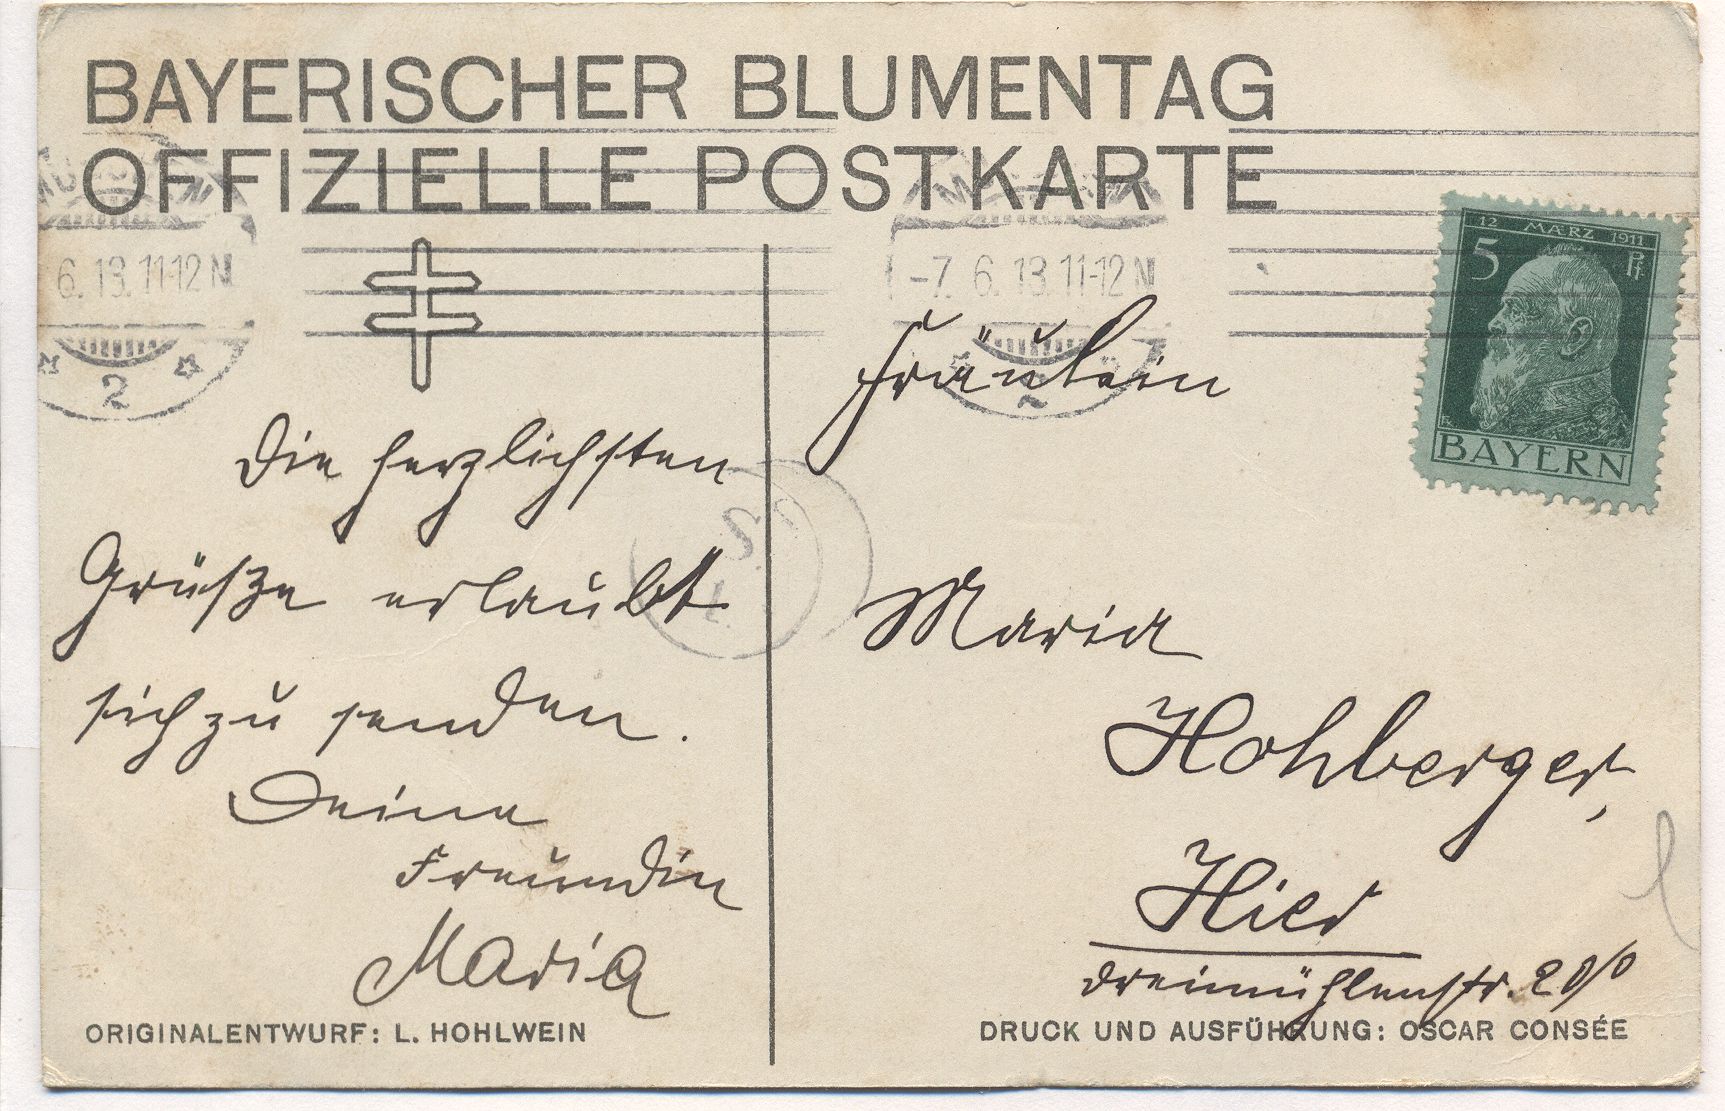 BAYERISCHER BLUMENTAG
OFFIZIELLE POSTKARTE
6.13.11-12 N
2
-7. 6.13 11-12 N
12 MÆRZ 1911
5 Pf
BAYERN
Die herzlichsten
Grüße erlaubt
sich zu senden.
Deine
Freundin
Maria
Fräulein
Maria
Hohberger,
Hier
Dreimühlenstr.
ORIGINALENTWURF: L. HOHLWEIN
DRUCK UND AUSFÜHRUNG: OSCAR CONSÉE